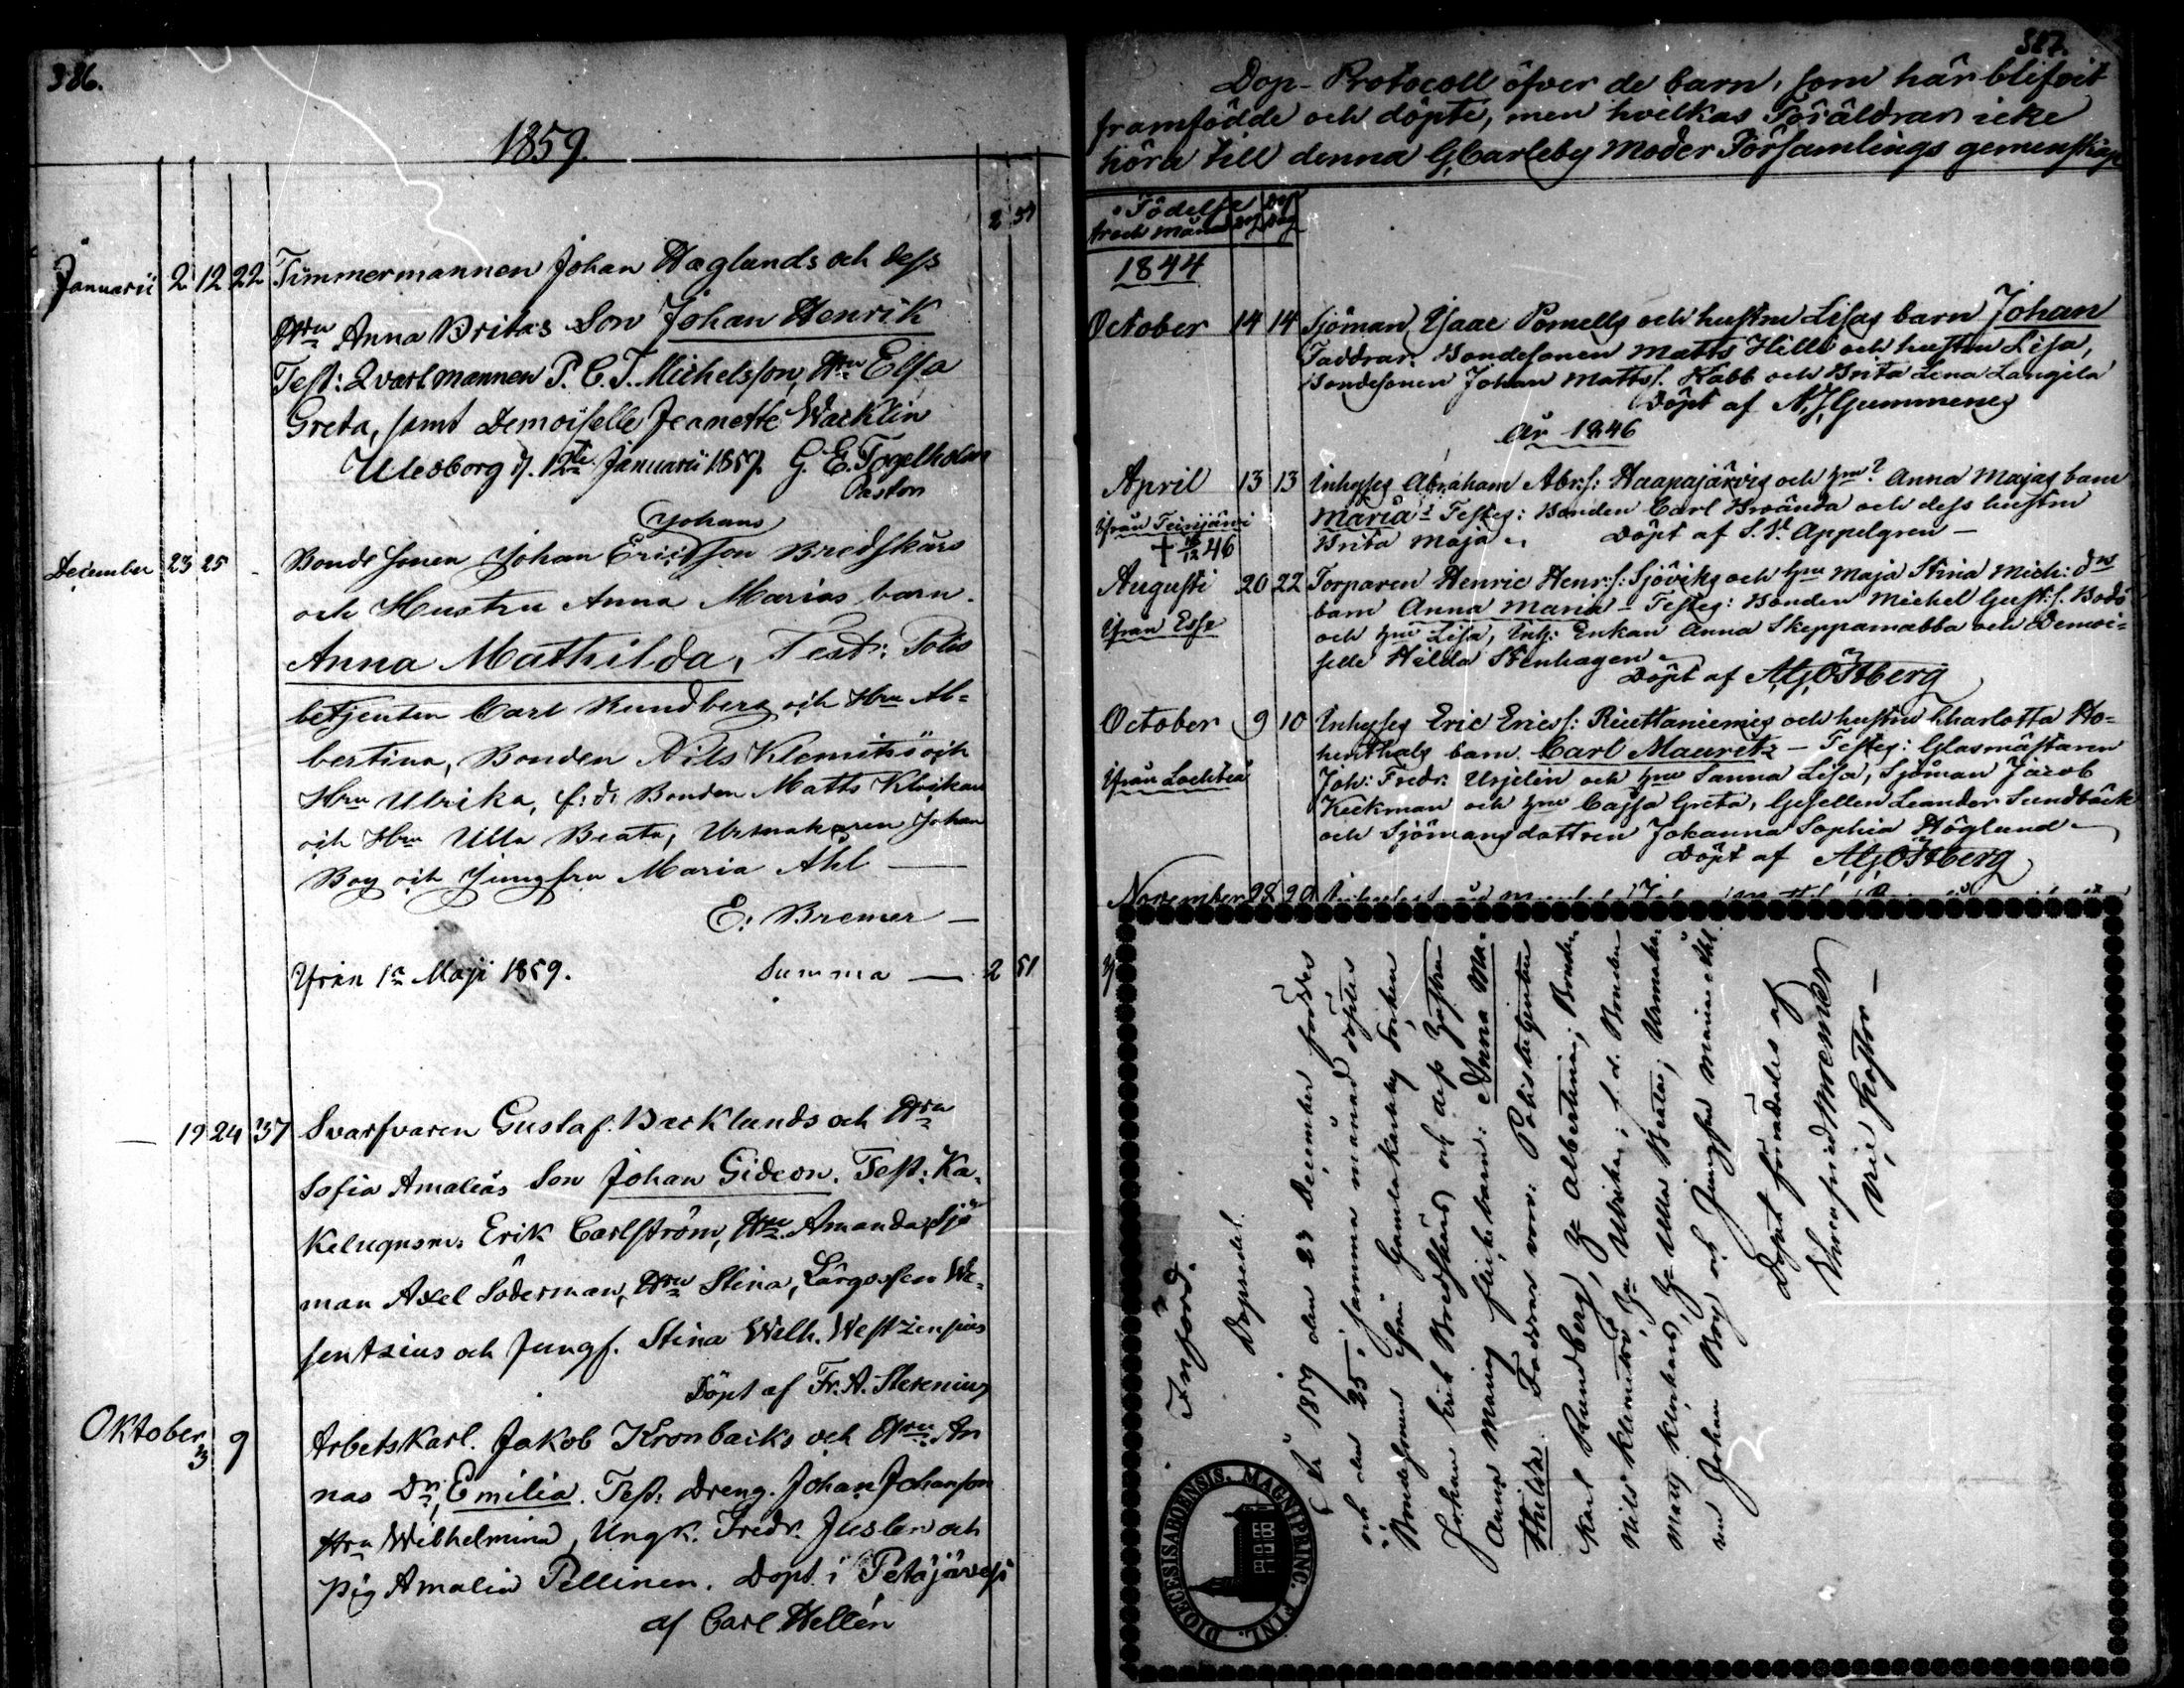 386.
1859.
2 51
Januarii 2 12 22 Timmermannen Johan Haglunds och dess
Hru Anna Britas Son Johan Henrik
Test: Qvartmannen P. C. J. Michelsson, Hru Elsa
Greta, samt Demoiselle Jeanette Wacklin
Uleåborg d. 1ste Januarii 1857. G. E. Fogelholm
Pastor
Johans
December 23 25 Bonde Sonen Johan Ericsson Bredskärs
och Hustru Anna Marias barn.
Anna Mathilda, Test: Polis
betjenten Carl Rundberg och Hru Al=
bertina, Bonden Nils Klemitsö och
Hru Ulrika, f:d: Bonden Matts Klockars
och Hru Ulla Beata, Urmakaren Johan
Boy och Jungfru Maria Ahl —
E: Bremer —
Ifrån 1a Maji 1859. Summa — 2 51
— 19 24 37 Svarfvaren Gustaf Backlunds och Hru
Sofia Amalias Son Johan Gideon. Test: Ka-
kelugnsm: Erik Carlström, Hru Amanda, Sjö
man Axel Söderman, Hru Stina,
sentzius och Jungf. Stina Wilh. Westzinsius
Döpt af Fr. A. Stenius
Oktober 3 9 Arbetskarl. Jakob Kronbacks och Hru An
nas Dr, Emilia. Test: dreng. Johan Johansson
Hru Wilhelmina, Ungk. Fredr. Juslen och
pig Amalia Pellinen. Döpt i Petäjävesi
af Carl Hellén
387.
Dop-Protocoll öfver de barn, som här blifvit
framfödde och döpte, men hvilkas Föräldrar icke
höra till denna GCarleby Moder Församlings gemenskap
Födelse Dop
år och månad dag dag
1844
October 14 14 Sjöman Isaac Pomells och hustru Lisas barn Johan
Faddrar: Bondesonen Matts Hilli och hustru Lisa,
Bondesonen Johan Matts s. Kabb och Brita Lena Langila
Döpt af N. J. Gummenes
År 1846
April 13 13 Inhyses Abraham Abr:s: Haapajärvis och hru Anna Majas barn
ifrån Teirijärvi Maria: Testes: Bonden Carl Broända och dess hustru
† 18/12 46 Brita Maja. Döpt af S. V. Appelgren —
Augusti 20 22 Torparen Henric Henr:s: Sjöviks och hru Maja Stina Mich: drs
ifrån Esse barn Anna Maria — Testes: Bonden Michel Gust:s. Bodö
och hru Lisa, Inh: Enkan Anna Skeppamabba och Demoi=
selle Hilda Stenhagen
Döpt af Alf Östberg
October 9 10 Inhyses Eric Erics: Riuttaniemis och hustru Charlotta Ho=
henthals barn. Carl Mauritz — Testes: Glasmästaren
ifrån Lochteå Joh: Fredr: Usjelin och hru Sanna Lisa, Sjöman Jacob
Keckman och hru Cajsa Greta, Gesellen Leander Sundbäck
och Sjömans dottren Johanna Sophia Höglund —
Döpt af Alf Östberg
November 28 29
Införd.
Dopsedel.
År 1859 den 23 December föddes
och den 25 i samma månad döptes
Bondesonen ifrån Gamlakarleby Socken
Johan Erik Bredskärs och dess Hustru
Anna Marias flicke barn: Anna Ma-
thilda. Faddrar voro: Polisbetjenten
Karl Rundberg, Hu Albertina; Bonden
Nils Klemitsö, Hu Ulrika; f. d. Bonden
Matts Klockars, Hu Ulla Beata; Urmaka-
ren Johan Boy och Jungfru Maria Ahl.
Döpet förrättades af
Ehrenfried Bremer
Vice Pastor —
DIOECESIS ABOENSIS. MAGNI PRINC. FINL.